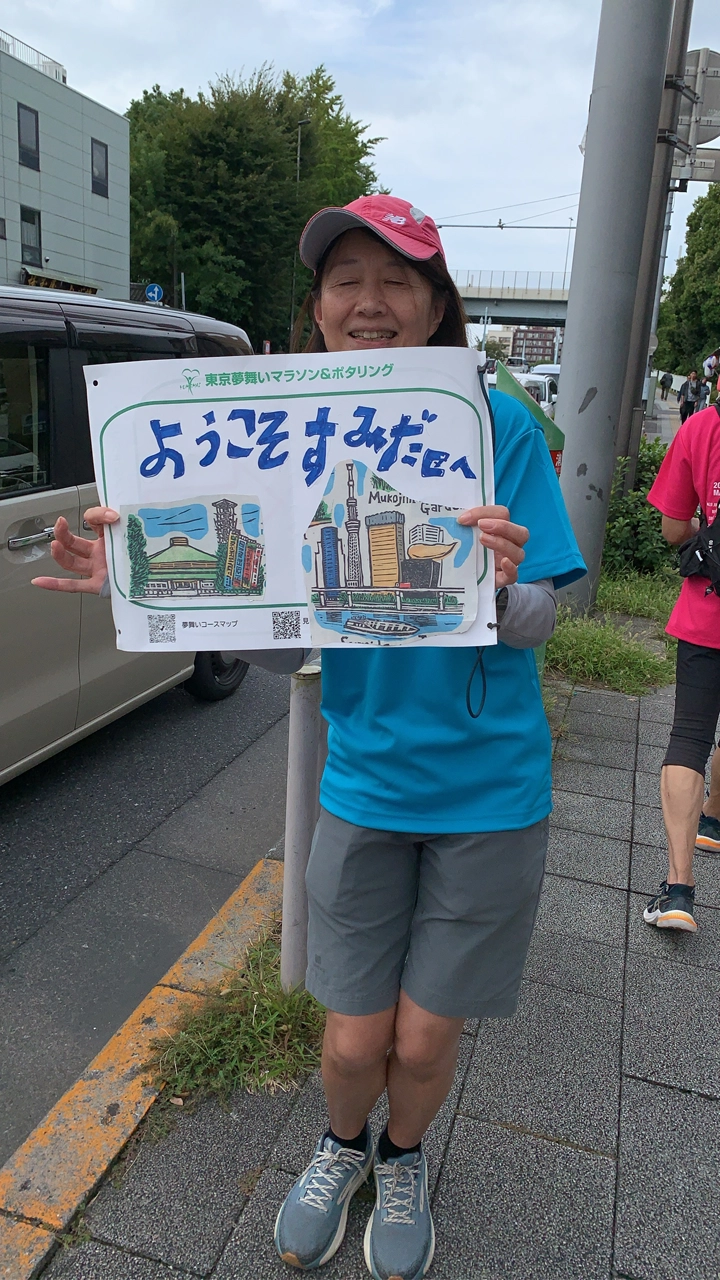 東京夢舞いマラソン&ポタリング
ようこそ すみだ区へ
Mukojim
Garde
夢舞いコースマップ
見